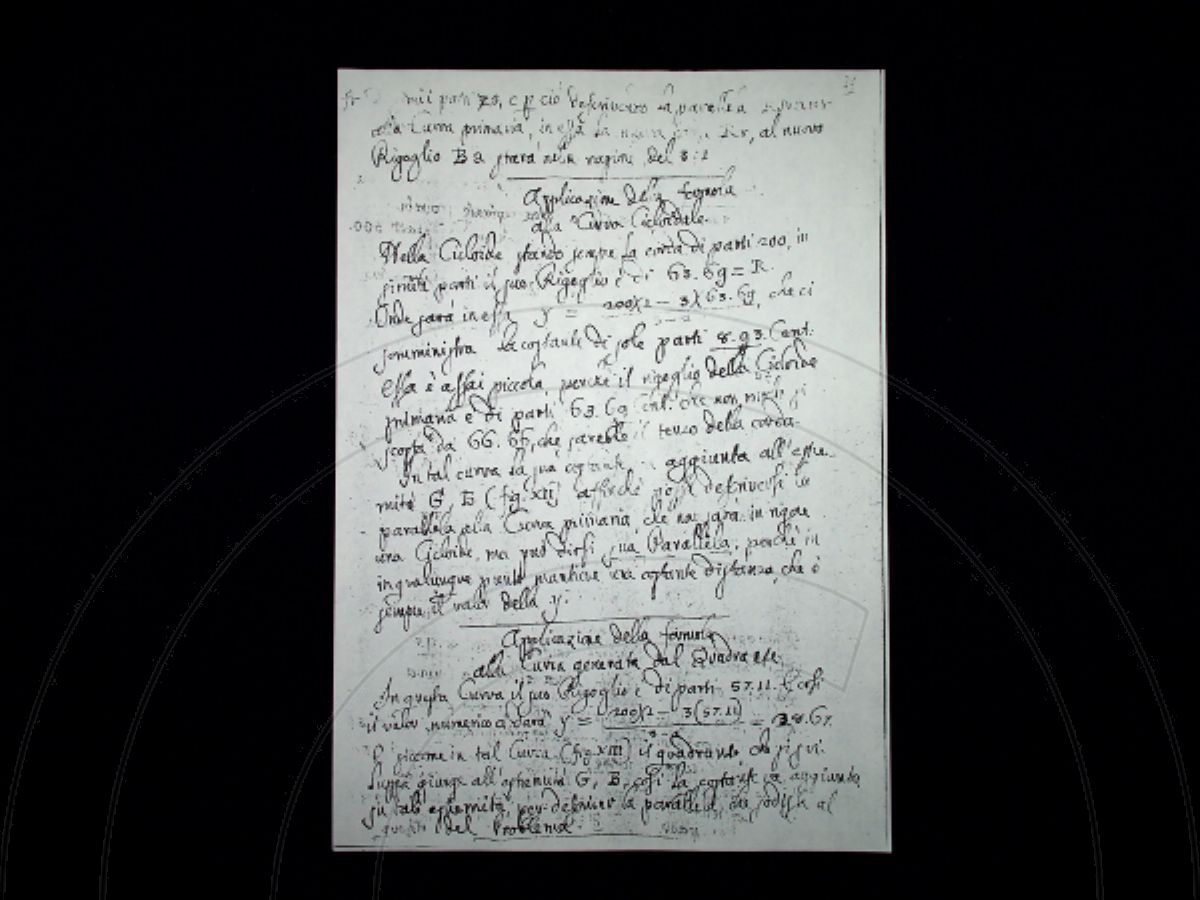 parti 20, e p ciò descriverò la parallela
alla Curva primaria, in essa la nuova al nuovo
Rigoglio B a starà nella ragine del 5:2
Applicazione della formola
alla Curva Cicloidale
Nella Cicloide stando sempre la corda di parti 200, in
simili parti il suo Rigoglio è di 63.69 = R.
Onde sarà in essa y = 200)2 - 3)(63.69, che ci
somministra la costante di sole parti 8.93. Cent.
Essa è assai piccola, perchè il rigoglio della Cicloide
primaria è di parti 63.69 Cent. che non si
scosta da 66.66, che sarebbe il terzo della corda.
In tal curva la sua costante aggiunta all'estre-
mità G, B (fig. XII) affinchè possa descriversi la
parallela alla Curva primaria, che non sarà in rigore
una Cicloide, ma può dirsi sua Parallela, perchè in
in qualunque punto mantiene una costante distanza, che è
sempre il valor della y.
Applicazione della formola
alla Curva generata dal Quadrante
In questa Curva il suo Rigoglio è di parti 57.11. E così
il valor numerico darà y = 200)2 - 3(57.11) = 38.67.
E siccome in tal Curva (fig. XIII) il quadrante, che
giunge all'estremità G, B, così la costante va aggiunta
su tali estremità per descriver la parallela, che sodisfa al
quesito del Problema